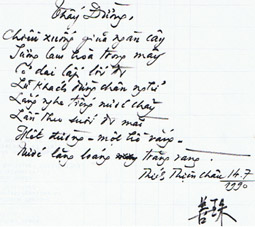 Thấy Đường,
Chim xuống giữa ngàn cây
Sương lam hòa trong mây
Cỏ dại lấp lối đi
Lữ khách dừng chân nghỉ
Lắng nghe tiếng nước chảy
Lần theo suối đi mãi
Hết đường - một hồ vắng -
Nước lăng loáng trăng vàng.
Thiện Châu 14.7
1990
善珠